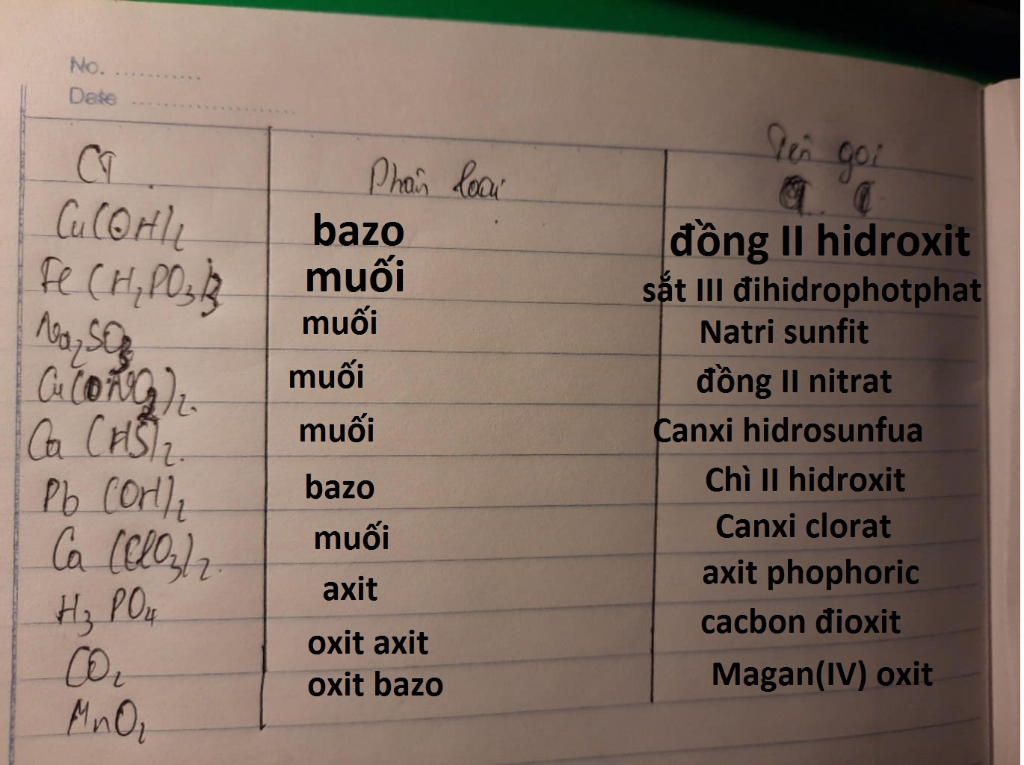 No. ...........
Date ......................
CT Phân loại Tên gọi
Cu(OH)2 bazo đồng II hidroxit
Fe(H2PO3)3 muối sắt III đihidrophotphat
Na2SO3 muối Natri sunfit
muối đồng II nitrat
Ca(HS)2. muối Canxi hidrosunfua
Pb(OH)2 bazo Chì II hidroxit
Ca(ClO3)2. muối Canxi clorat
H3PO4 axit axit phophoric
CO2 oxit axit cacbon đioxit
MnO2 oxit bazo Magan(IV) oxit